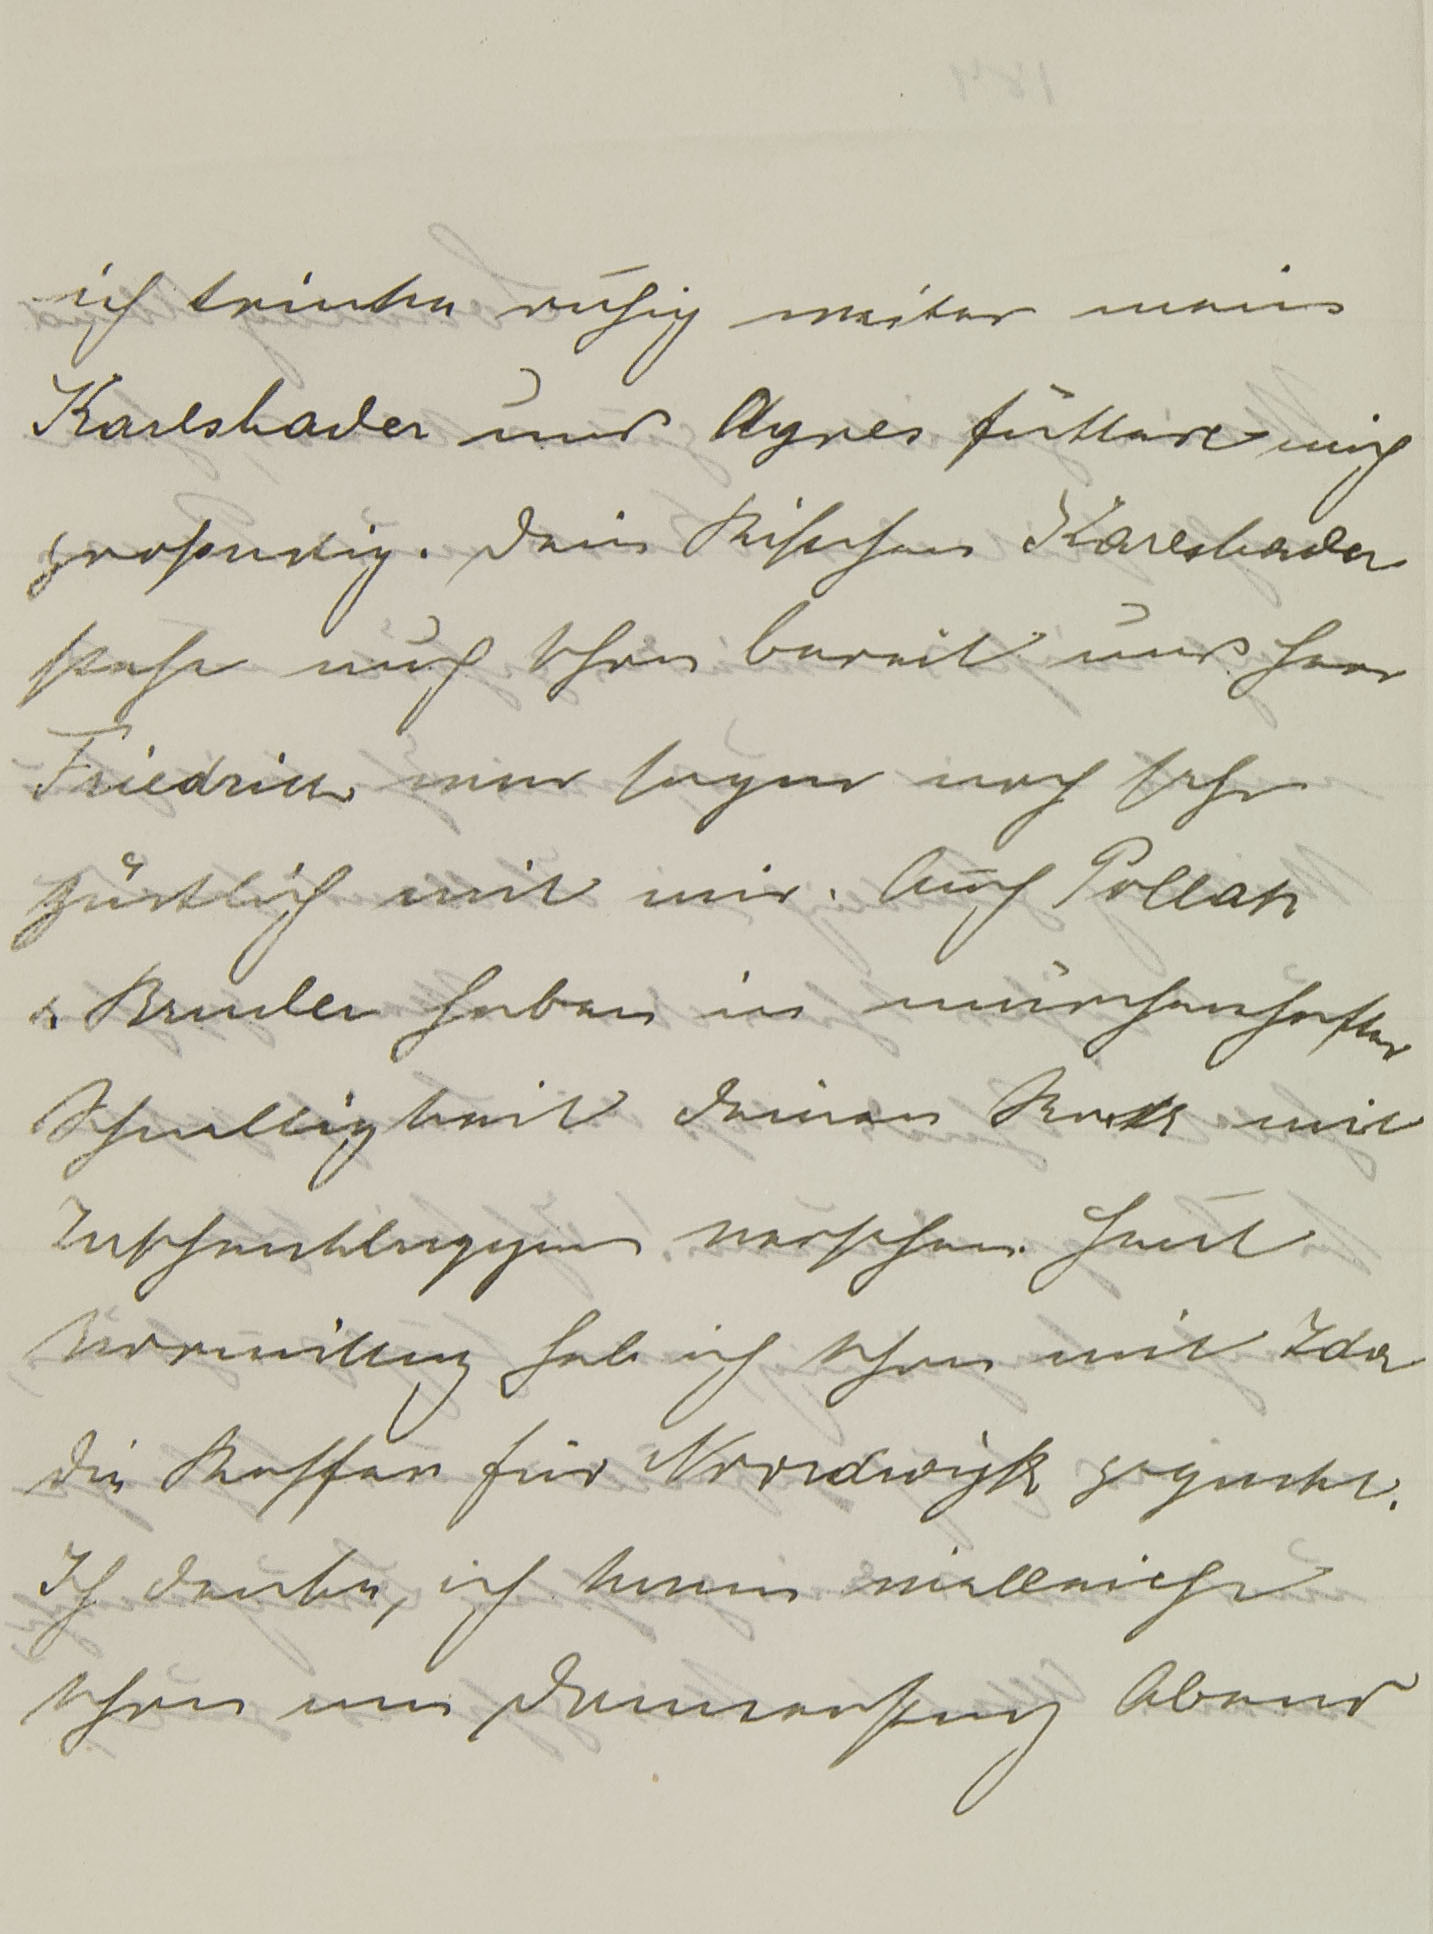 ich trinke ruhig weiter mein
Karlsbader und Agnes füttert mich
grossartig. Dein Kisschen Karlsbader
steht auch schon bereit und Herr
Friedrich war sogar noch sehr
zärtlich mit mir. Auch Pollak
u. Bruder haben in märchenhafter
Schnelligkeit Deinen Rock mit
Taschenklappen versehen. Heut
Vormittag hab ich schon mit Ida
die Koffer für Noordwijk gepackt.
Ich denke, ich kann vielleicht
schon am Donnerstag Abend